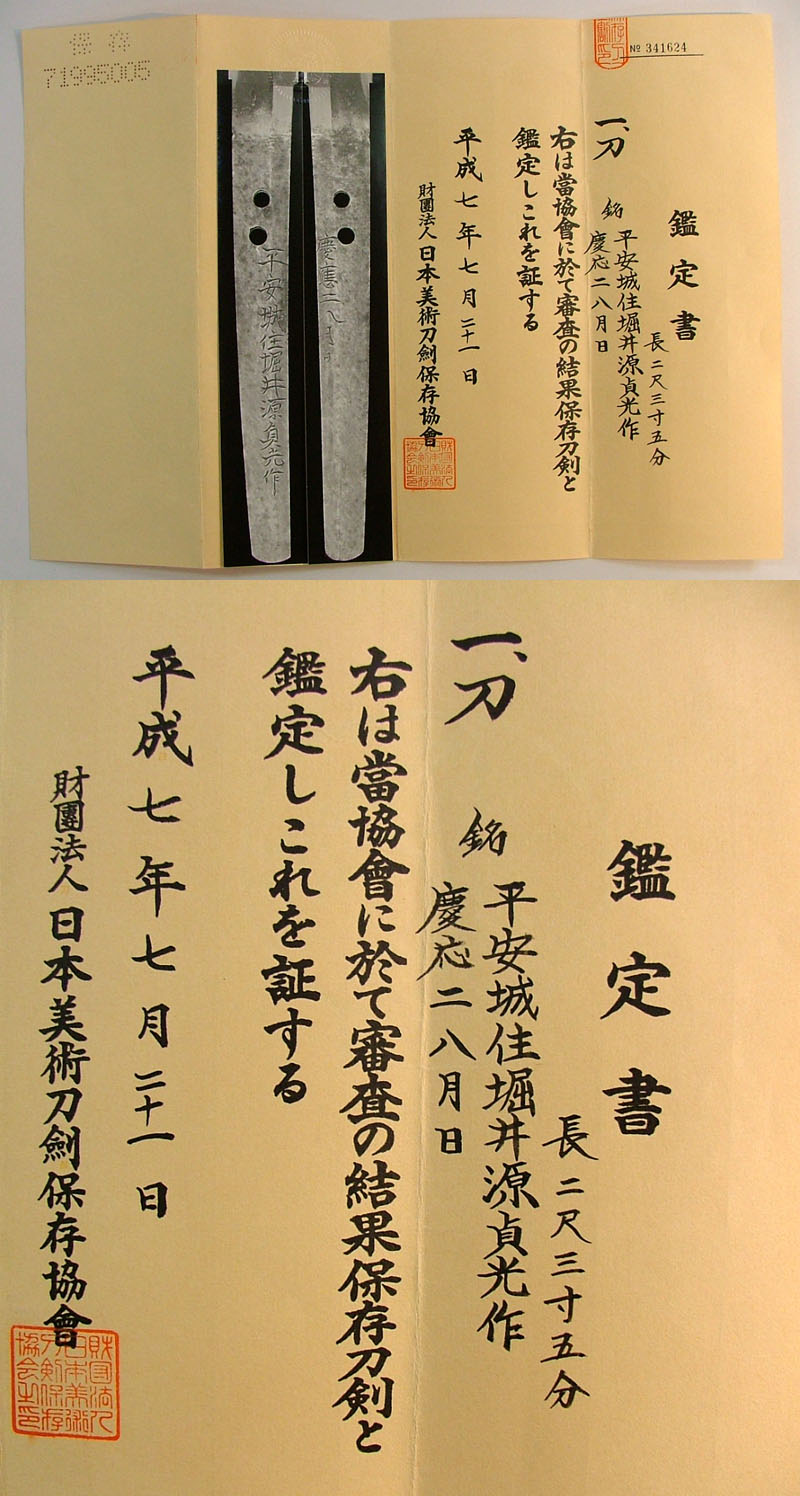 保存
71995005
平安城住堀井源貞光作
慶應二八月日
№ 341624
鑑定書
一、刀
長二尺三寸五分
銘 平安城住堀井源貞光作
慶応二八月日
右は當協會に於て審査の結果保存刀剣と
鑑定しこれを証する
平成七年七月二十一日
財團法人日本美術刀劍保存協會
財団法人日本美術刀剣保存協会之印
鑑定書
長二尺三寸五分
一、刀 銘 平安城住堀井源貞光作
慶応二八月日
右は當協會に於て審査の結果保存刀剣と
鑑定しこれを証する
平成七年七月二十一日
財團法人日本美術刀劍保存協會
財団法人日本美術刀剣保存協会之印